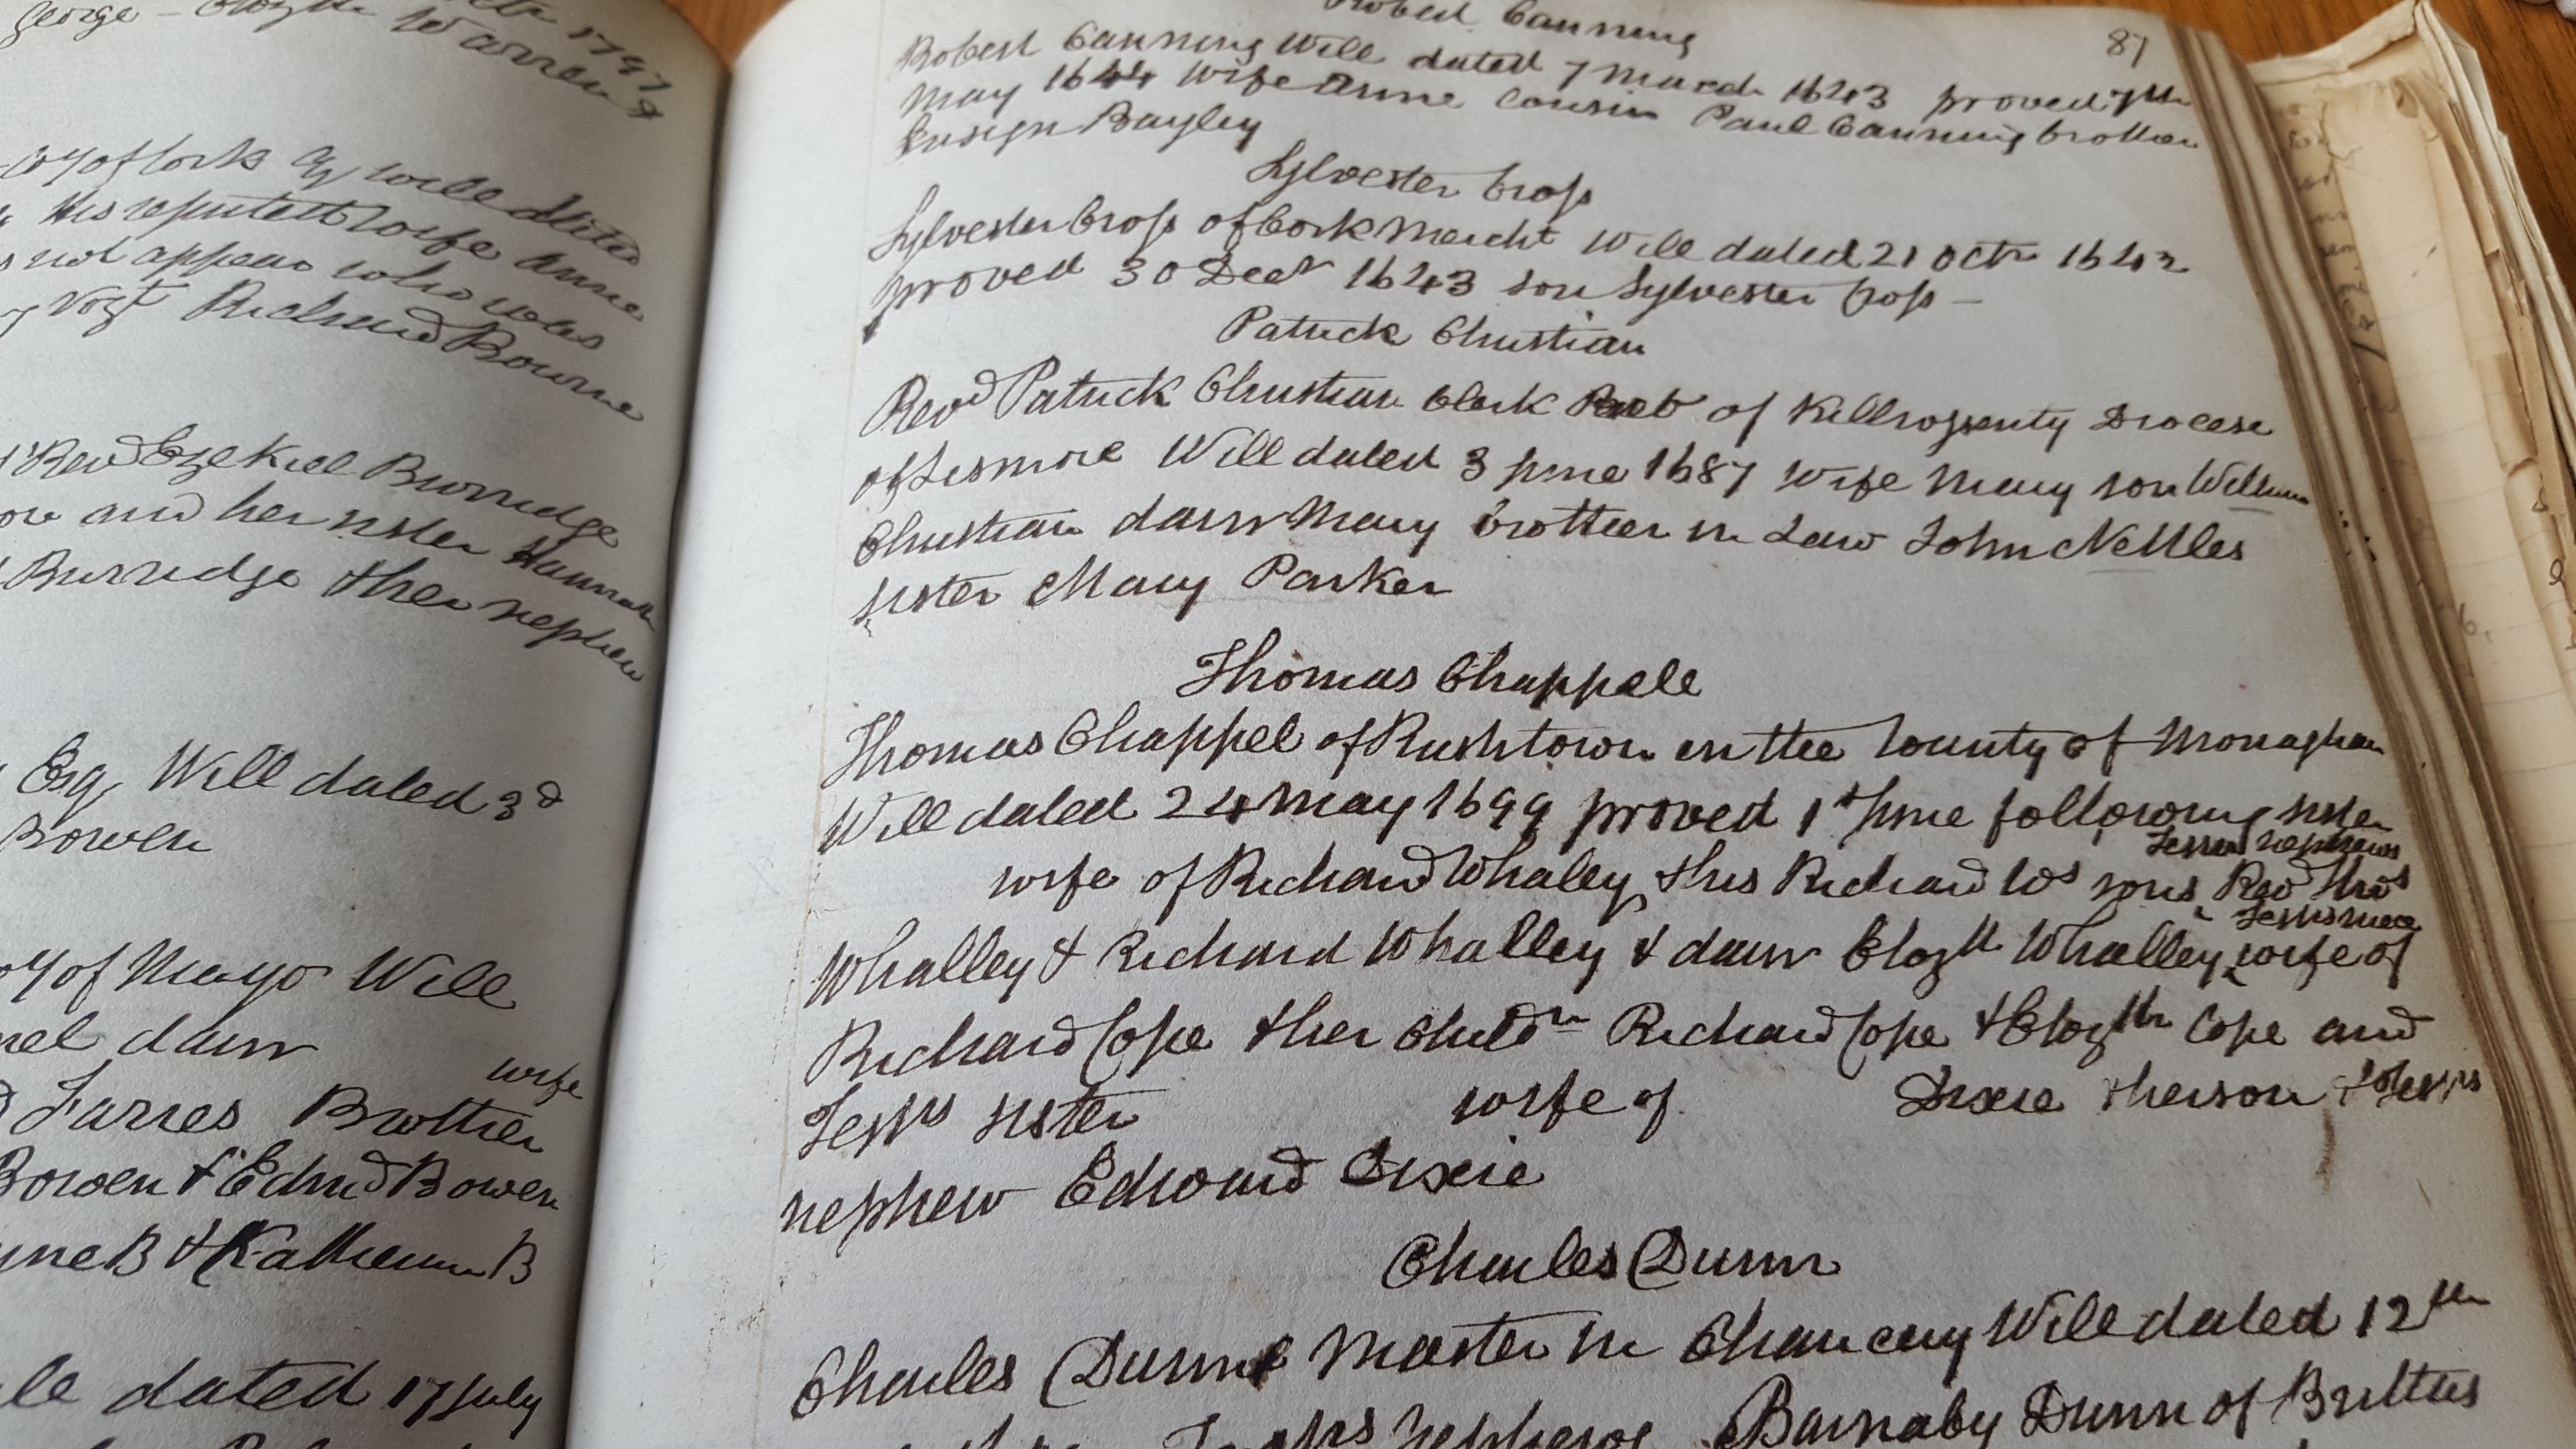 George - Elizth Warren &
1797
Coy of Cork Esq will dated
his reputed wife Anne
not appear who was
Richard Bowne
Revd Ezekiel Burridge
and her sister Hannah
Burridge & her nephew
Esq Will dated 3d
Bowen
of Mayo Will
daur
wife
James Brother
Bowen & Edmd Bowen
B & Katherine B
dated 17 July
87
Robert Canning
Robert Canning Will dated 7 March 1643 proved 7th
May 1644 wife Anne Cousin Paul Canning brother
Ensign Bayley
Sylvester Cross
Sylvester Cross of Cork Mercht Will dated 21 Octr 1642
proved 30 Decr 1643 son Sylvester Cross -
Patrick Christian
Revd Patrick Christian Clerk of Killrossenty Diocese
of Lismore Will dated 3 June 1687 wife Mary son William
Christian daur Mary brother in Law John Nettles
sister Mary Parker
Thomas Chappele
Thomas Chappel of Rushtown in the County of Monaghan
Will dated 24 May 1699 proved 1st June following sister
Testrs nephews
wife of Richard Whaley, & his Richard Ws sons Revd Thos
Testrs niece
Whalley & Richard Whalley & daur Elizth Whalley wife of
Richard Cope & her Childrn Richard Cope & Elizth Cope and
Testrs sister wife of Dixie & her son & Testrs
nephew Edward Dixie
Charles Dunn
Charles Dunn Master in Chancery Will dated 12th
Testrs Nephew Barnaby Dunn of Brittas